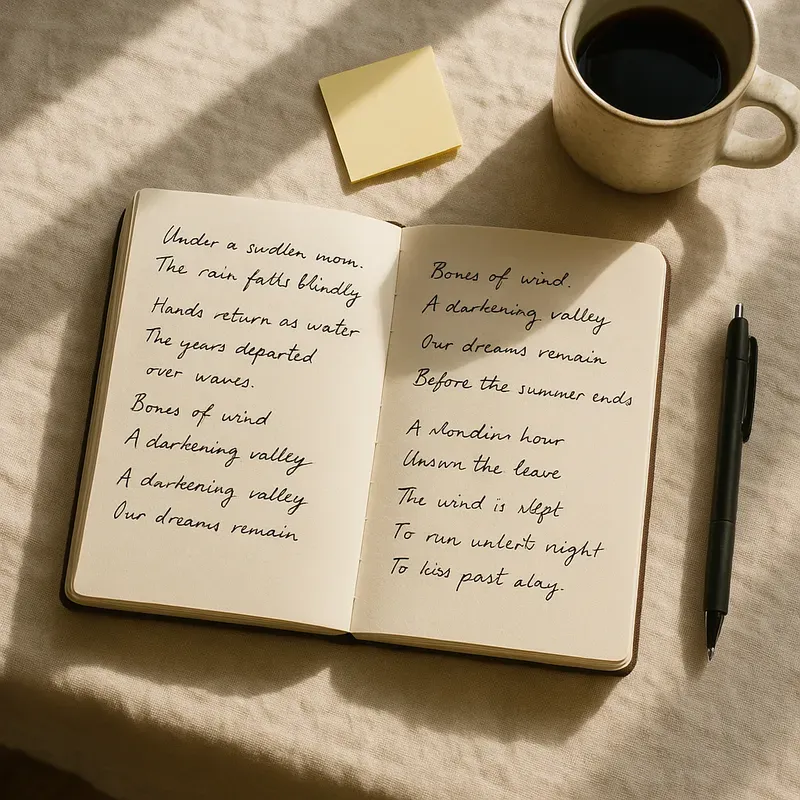 Under a sudden mom.
The rain falls blindly
Hands return as water
The years departed
over waves.
Bones of wind
A darkening valley
A darkening valley
Our dreams remain
Bones of wind.
A darkening valley
Our dreams remain
Before the summer ends
A hour
the leave
The wind is
To run night
To kiss past alay.